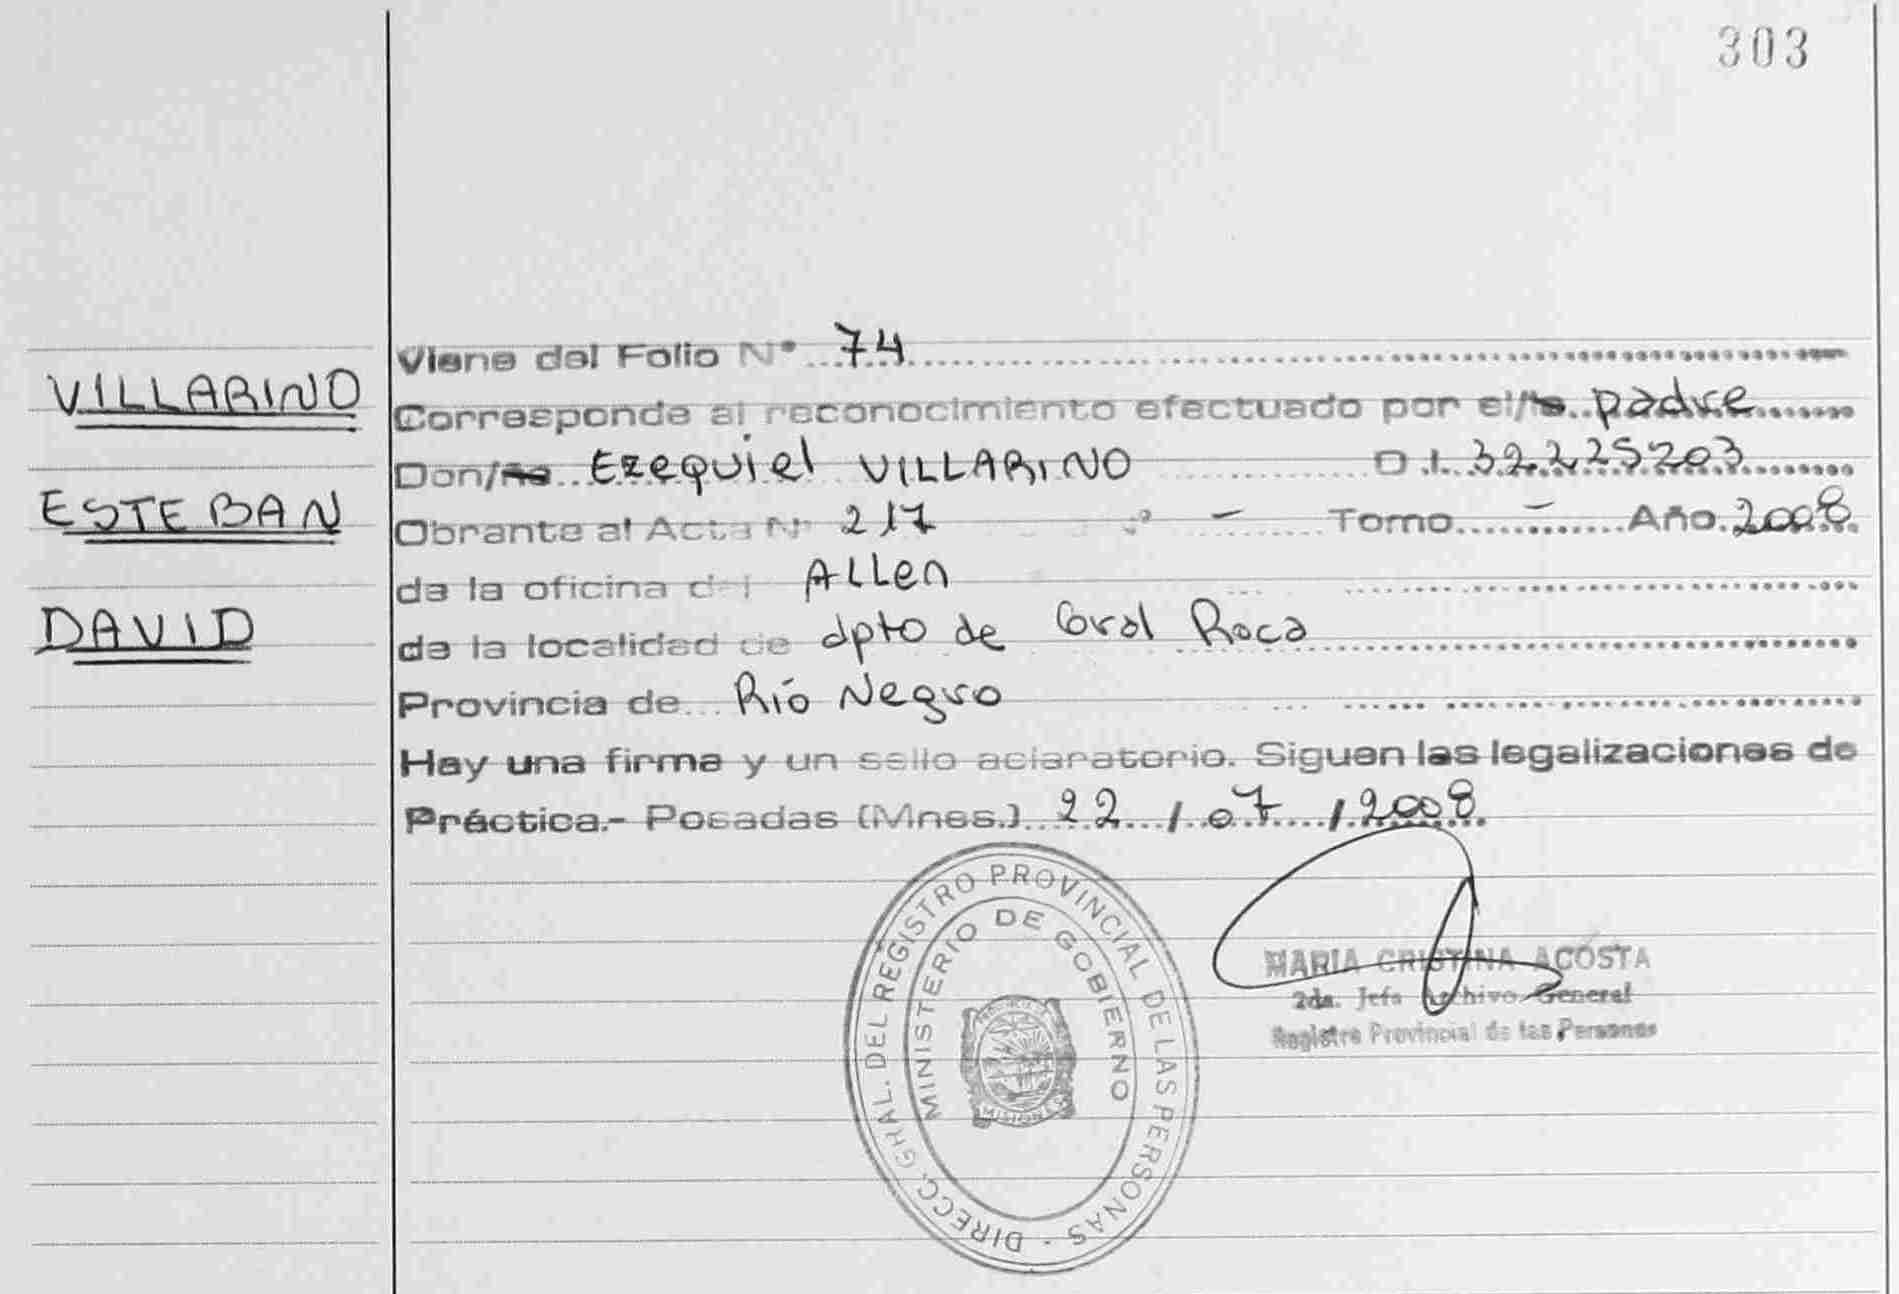 303
VILLARINO
ESTEBAN
DAVID
Viene del Folio N° 74
Corresponde al reconocimiento efectuado por el/la padre
Don/ña Ezequiel VILLARINO D.I. 32.225.203
Obrante al Acta N° 217 - Tomo - Año 2008
de la oficina del Allen
de la localidad de dpto de Gral Roca
Provincia de Río Negro
Hay una firma y un sello aclaratorio. Siguen las legalizaciones de
Práctica.- Posadas (Mnes.) 22 / 07 / 2008
DIRECC. GRAL. DEL REGISTRO PROVINCIAL DE LAS PERSONAS -
MINISTERIO DE GOBIERNO
MISIONES
MARIA CRISTINA ACOSTA
2da. Jefa Archivo General
Registro Provincial de las Personas